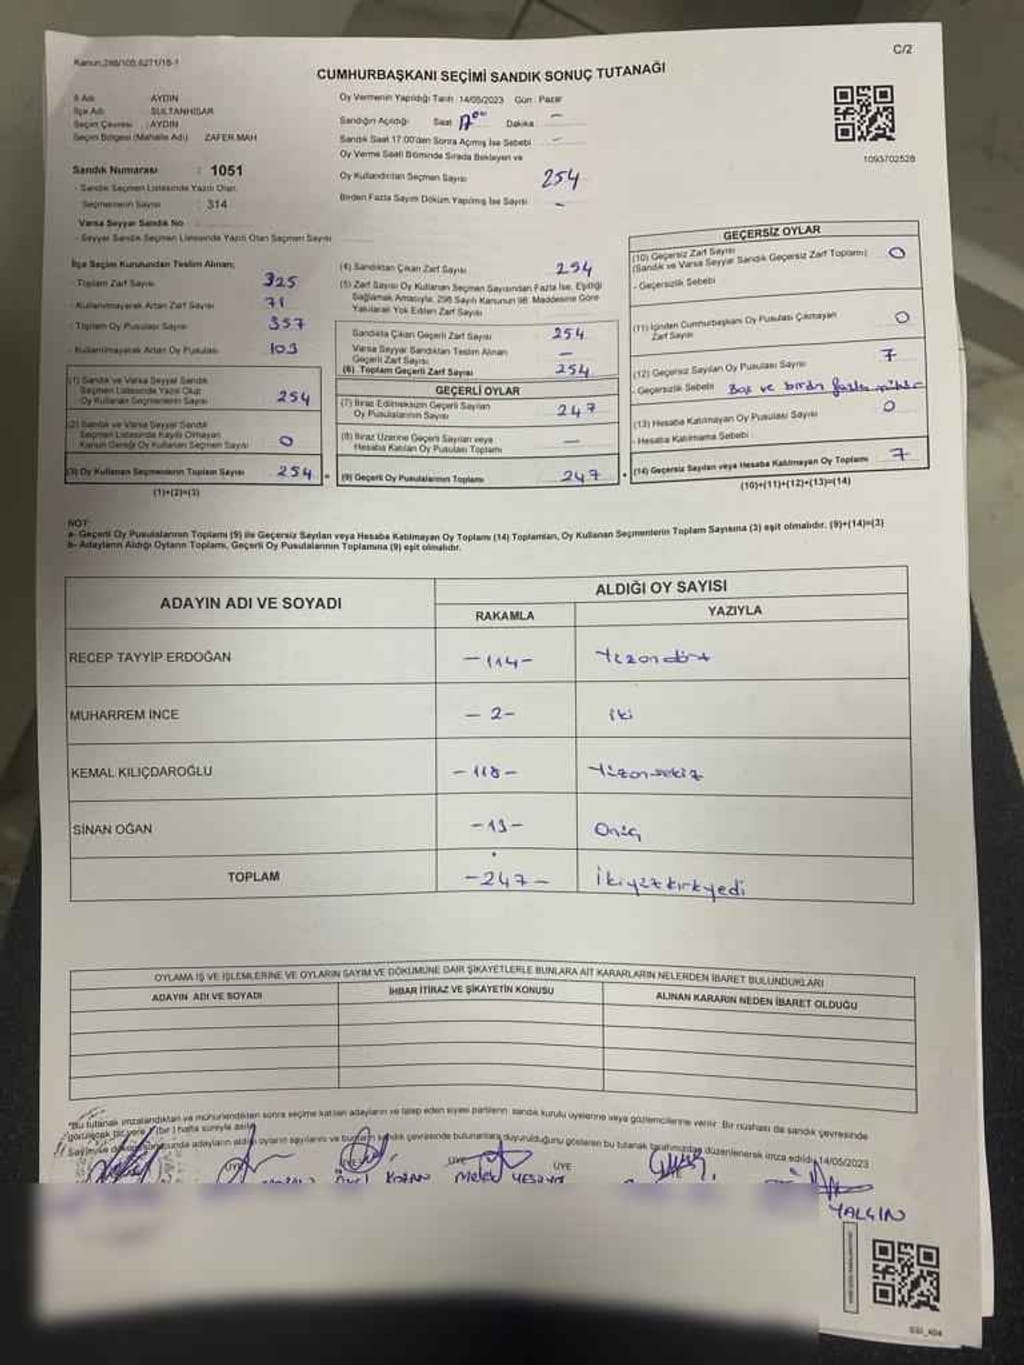 C/2
Kanun:298/105,6271/18-1
CUMHURBAŞKANI SEÇİMİ SANDIK SONUÇ TUTANAĞI
İl Adı AYDIN
İlçe Adı SULTANHİSAR
Seçim Çevresi : AYDIN
Seçim Bölgesi (Mahalle Adı) ZAFER MAH
Sandık Numarası : 1051
- Sandık Seçmen Listesinde Yazılı Olan
Seçmenlerin Sayısı : 314
Varsa Seyyar Sandık No
- Seyyar Sandık Seçmen Listesinde Yazılı Olan Seçmen Sayısı
Oy Vermenin Yapıldığı Tarih :14/05/2023 Gün : Pazar
Sandığın Açıldığı Saat 17:00 Dakika –
Sandık Saat 17:00'den Sonra Açılmış İse Sebebi –
Oy Verme Saati Bitiminde Sırada Bekleyen ve
Oy Kullandırılan Seçmen Sayısı 254
Birden Fazla Sayım Döküm Yapılmış İse Sayısı –
1093702528
İlçe Seçim Kurulundan Teslim Alınan;
- Toplam Zarf Sayısı 325
- Kullanılmayarak Artan Zarf Sayısı 71
- Toplam Oy Pusulası Sayısı 357
- Kullanılmayarak Artan Oy Pusulası 103
(1) Sandık ve Varsa Seyyar Sandık
Seçmen Listesinde Yazılı Olup
Oy Kullanan Seçmenlerin Sayısı 254
(2) Sandık ve Varsa Seyyar Sandık
Seçmen Listesinde Kayıtlı Olmayan
Kanun Gereği Oy Kullanan Seçmen Sayısı 0
(3) Oy Kullanan Seçmenlerin Toplam Sayısı 254
(1)+(2)=(3)
(4) Sandıktan Çıkan Zarf Sayısı 254
(5) Zarf Sayısı Oy Kullanan Seçmen Sayısından Fazla İse, Eşitliği
Sağlamak Amacıyla, 298 Sayılı Kanunun 98. Maddesine Göre
Yakılarak Yok Edilen Zarf Sayısı
Sandıkta Çıkan Geçerli Zarf Sayısı 254
Varsa Seyyar Sandıktan Teslim Alınan
Geçerli Zarf Sayısı –
(6) Toplam Geçerli Zarf Sayısı 254
GEÇERLİ OYLAR
(7) İtiraz Edilmeksizin Geçerli Sayılan
Oy Pusulalarının Sayısı 247
(8) İtiraz Üzerine Geçerli Sayılan veya
Hesaba Katılan Oy Pusulası Toplamı –
(9) Geçerli Oy Pusulalarının Toplamı 247
GEÇERSİZ OYLAR
(10) Geçersiz Zarf Sayısı
(Sandık ve Varsa Seyyar Sandık Geçersiz Zarf Toplamı) 0
- Geçersizlik Sebebi
(11) İçinden Cumhurbaşkanı Oy Pusulası Çıkmayan
Zarf Sayısı 0
(12) Geçersiz Sayılan Oy Pusulası Sayısı 7
- Geçersizlik Sebebi Boş ve birden fazla
(13) Hesaba Katılmayan Oy Pusulası Sayısı 0
- Hesaba Katılmama Sebebi :
(14) Geçersiz Sayılan veya Hesaba Katılmayan Oy Toplamı 7
(10)+(11)+(12)+(13)=(14)
NOT:
a- Geçerli Oy Pusulalarının Toplamı (9) ile Geçersiz Sayılan veya Hesaba Katılmayan Oy Toplamı (14) Toplamları, Oy Kullanan Seçmenlerin Toplam Sayısına (3) eşit olmalıdır. (9)+(14)=(3)
b- Adayların Aldığı Oyların Toplamı, Geçerli Oy Pusulalarının Toplamına (9) eşit olmalıdır.
ADAYIN ADI VE SOYADI
ALDIĞI OY SAYISI
RAKAMLA YAZIYLA
RECEP TAYYİP ERDOĞAN -114- Yüzondört
MUHARREM İNCE -2- iki
KEMAL KILIÇDAROĞLU -118- Yüzonsekiz
SİNAN OĞAN -13- Onüç
TOPLAM -247- ikiyüzkırkyedi
OYLAMA İŞ VE İŞLEMLERİNE VE OYLARIN SAYIM VE DÖKÜMÜNE DAİR ŞİKAYETLERLE BUNLARA AİT KARARLARIN NELERDEN İBARET BULUNDUKLARI
ADAYIN ADI VE SOYADI İHBAR İTİRAZ VE ŞİKAYETİN KONUSU ALINAN KARARIN NEDEN İBARET OLDUĞU
*Bu tutanak imzalandıktan ve mühürlendikten sonra seçime katılan adayların ve talep eden siyasi partilerin sandık kurulu üyelerine veya gözlemcilerine verilir. Bir nüshası da sandık çevresinde
görülecek bir yere 1 (bir) hafta süreyle asılır.
Sayım ve döküm sonucunda adayların aldığı oyların sayılarını ve bunların sandık çevresinde bulunanlara duyurulduğunu gösteren bu tutanak tarafımızdan düzenlenerek imza edildi. 14/05/2023
ÜYE ÜYE ÜYE ÜYE
KORAN
YALÇIN